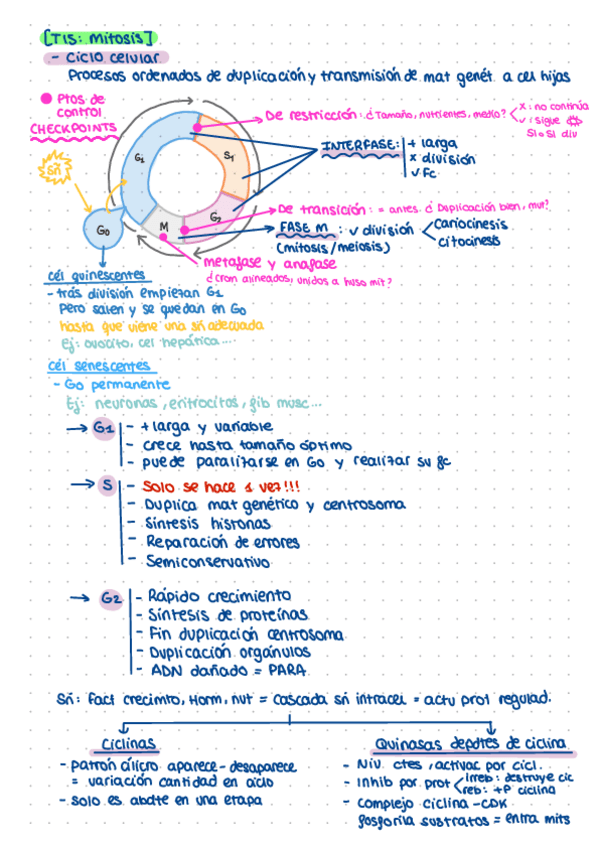 [T15: Mitosis]
- Ciclo celular
Procesos ordenados de duplicación y transmisión de mat genét a cel hijas
Ptos de control
CHECKPOINTS
De restricción: ¿Tamaño, nutrientes, medio?
x: no continúa
✓: sigue
Si o Si div
Sñ
G1
S
G2
M
G0
INTERFASE:
+ larga
x división
✓ Fc
De transición: = antes. ¿Duplicación bien, mut?
FASE M : ✓ división
(mitosis/meiosis)
Cariocinesis
Citocinesis
metafase y anafase
¿Crom alineados, unidos a huso mit?
cél quinescentes
- trás división empiezan G1
Pero salen y se quedan en G0
hasta que viene una sñ adecuada
Ej: ovocito, cel hepática....
cél senescentes
- G0 permanente
Ej: neuronas, eritrocitos, fib musc...
→ G1
- + larga y variable
- crece hasta tamaño óptimo
- puede paralizarse en G0 y realizar su fc
→ S
- Solo se hace 1 vez!!!
- Duplica mat genético y centrosoma
- Síntesis histonas
- Reparación de errores
- Semiconservativo
→ G2
- Rápido crecimiento
- Síntesis de proteínas
- Fin duplicación centrosoma
- Duplicación orgánulos
- ADN dañado = PARA
Sñ: Fact crecimto, Horm, nut = Cascada sñ intracel = actu prot regulad.
Ciclinas
- Patrón cílicro aparece - desaparece
= variación cantidad en ciclo
- Solo es abdte en una etapa
Quinasas depdtes de ciclina
- Niv. ctes, activac por cicl.
- Inhib por prot
Irreb: destruye cic
reb: +P ciclina
- Complejo ciclina - CDK
fosforila sustratos = entra mits